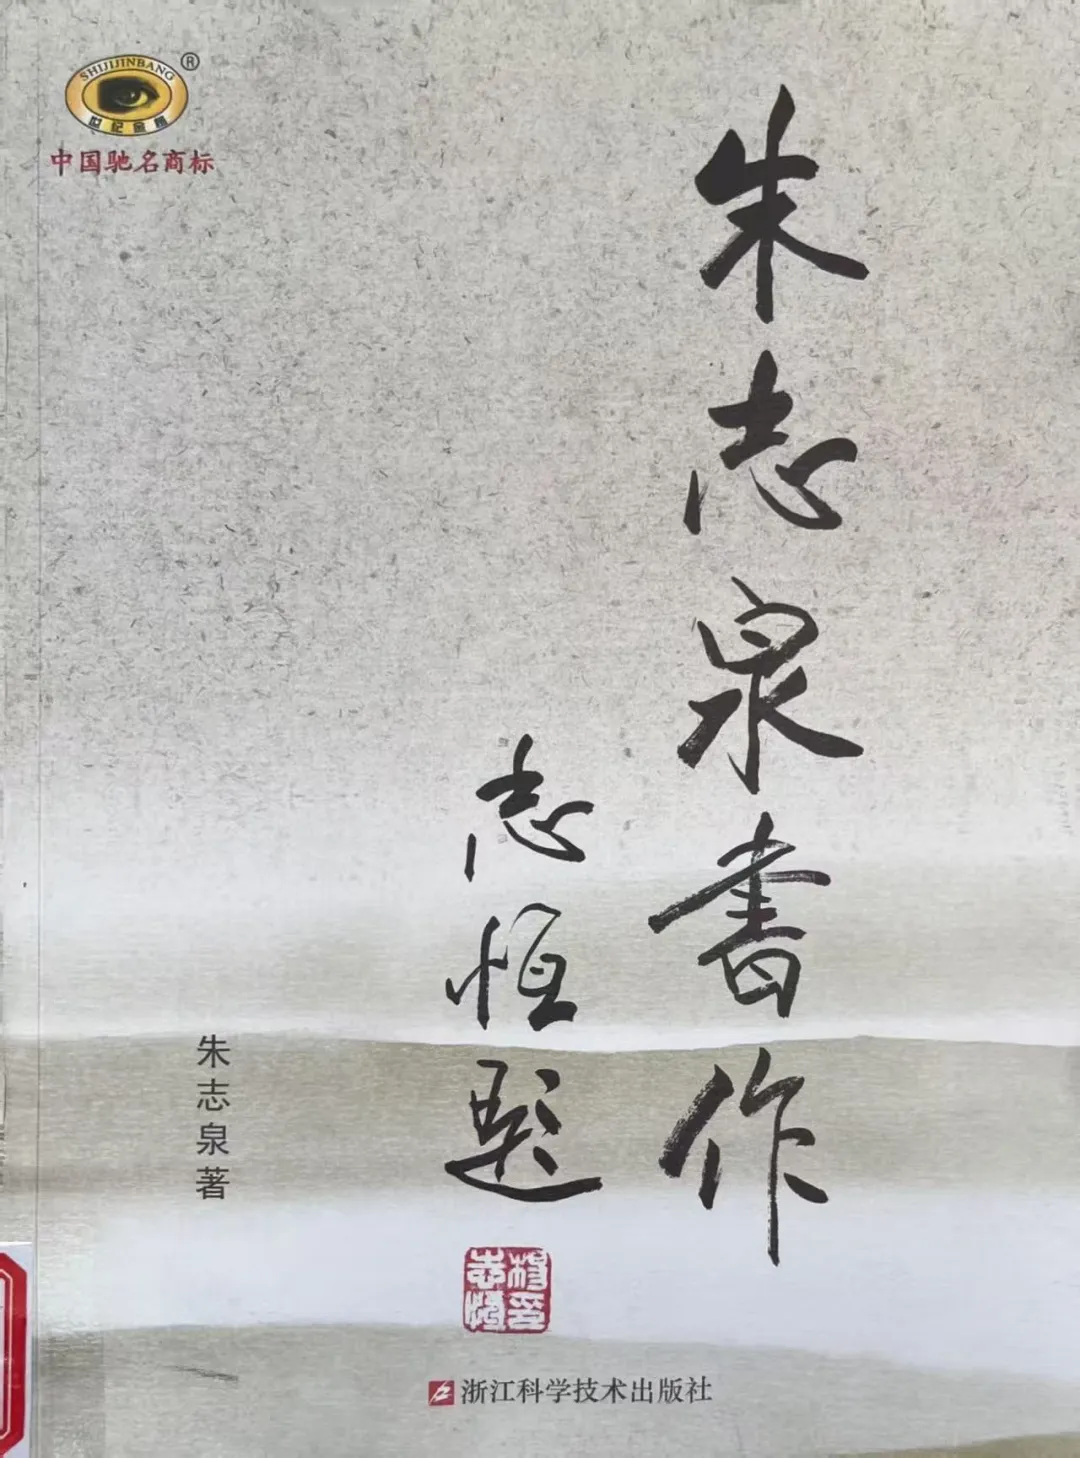 SHIJIJINBANG
®
世纪金榜
中国驰名商标
朱志泉書作
志恒题
朱志泉著
浙江科学技术出版社